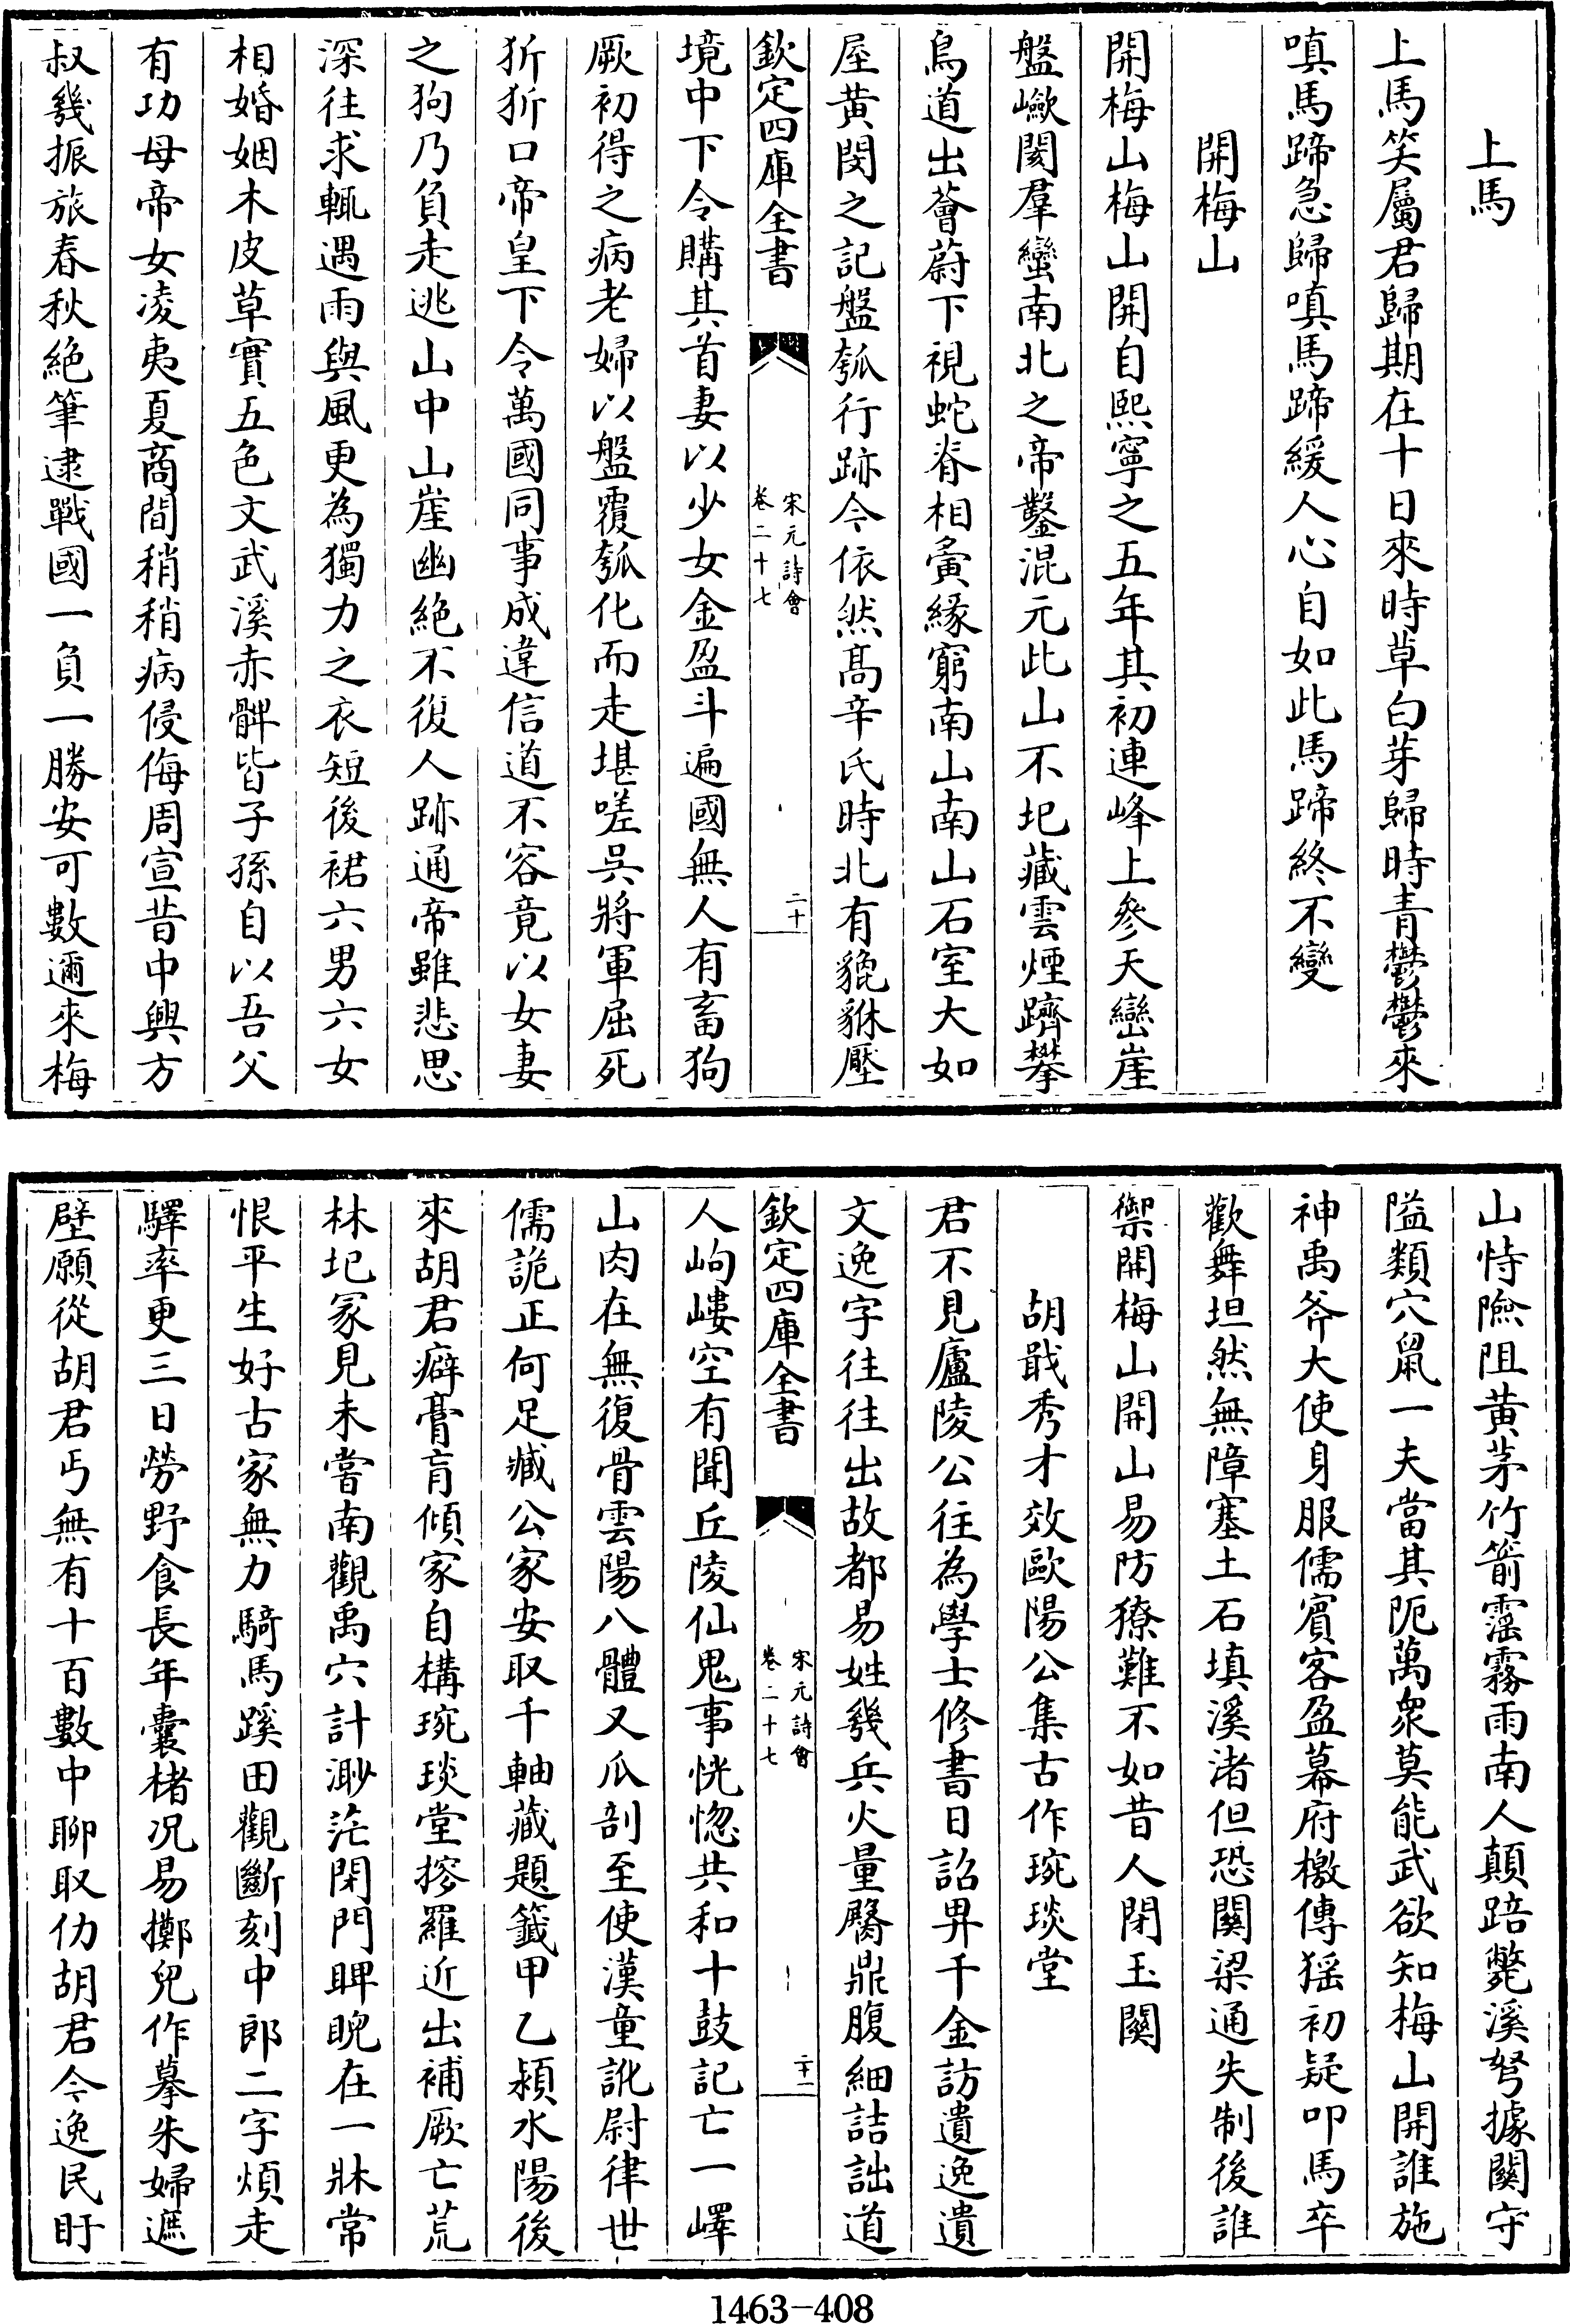 上馬
上馬笑屬君歸期在十日來時草白芽歸時青鬱鬱來
嗔馬蹄急歸嗔馬蹄緩人心自如此馬蹄終不變
開梅山
開梅山梅山開自熙寧之五年其初連峰上參天巒崖
盤嶮閡羣蠻南北之帝鑿混元此山不圮藏雲煙躋攀
鳥道出薈蔚下視蛇脊相夤緣窮南山南山石室大如
屋黃閔之記盤瓠行跡今依然高辛氏時北有貔貅壓
欽定四庫全書
宋元詩會
卷二十七
二十
境中下令購其首妻以少女金盈斗遍國無人有畜狗
厥初得之病老婦以盤覆瓠化而走堪嗟吳將軍屈死
狾狾口帝皇下令萬國同事成違信道不容竟以女妻
之狗乃負走逃山中山崖幽絕不復人跡通帝雖悲思
深往求輒遇雨與風更為獨力之衣短後裙六男六女
相婚姻木皮草實五色文武溪赤髀皆子孫自以吾父
有功母帝女凌夷夏商間稍稍病侵侮周宣昔中興方
叔幾振旅春秋絕筆逮戰國一負一勝安可數邇來梅
山恃險阻黃茅竹箭霪霧雨南人顛踣斃溪弩據關守
隘類穴鼠一夫當其阨萬衆莫能武欲知梅山開誰施
神禹斧大使身服儒賓客盈幕府檄傳猺初疑叩馬卒
歡舞坦然無障塞土石填溪渚但恐關梁通失制後誰
禦開梅山開山易防獠難不如昔人閉玉關
胡戢秀才效歐陽公集古作琬琰堂
君不見廬陵公往為學士修書日詔畀千金訪遺逸遺
文逸字往往出故都易姓幾兵火量臋鼎腹細詰詘道
欽定四庫全書
宋元詩會
卷二十七
二十一
人岣嶁空有聞丘陵仙鬼事恍惚共和十鼓記亡一嶧
山肉在無復骨雲陽八體又瓜剖至使漢童訛尉律世
儒詭正何足臧公家安取千軸藏題籤甲乙潁水陽後
來胡君癖膏肓傾家自構琬琰堂摉羅近出補厥亡荒
林圮冢見未嘗南觀禹穴計渺茫閉門睥睨在一牀常
恨平生好古家無力騎馬蹊田觀斷刻中郎二字煩走
驛率更三日勞野食長年囊楮况易擲兒作摹朱婦遮
壁願從胡君丐無有十百數中聊取仂胡君今逸民盱
1463-408